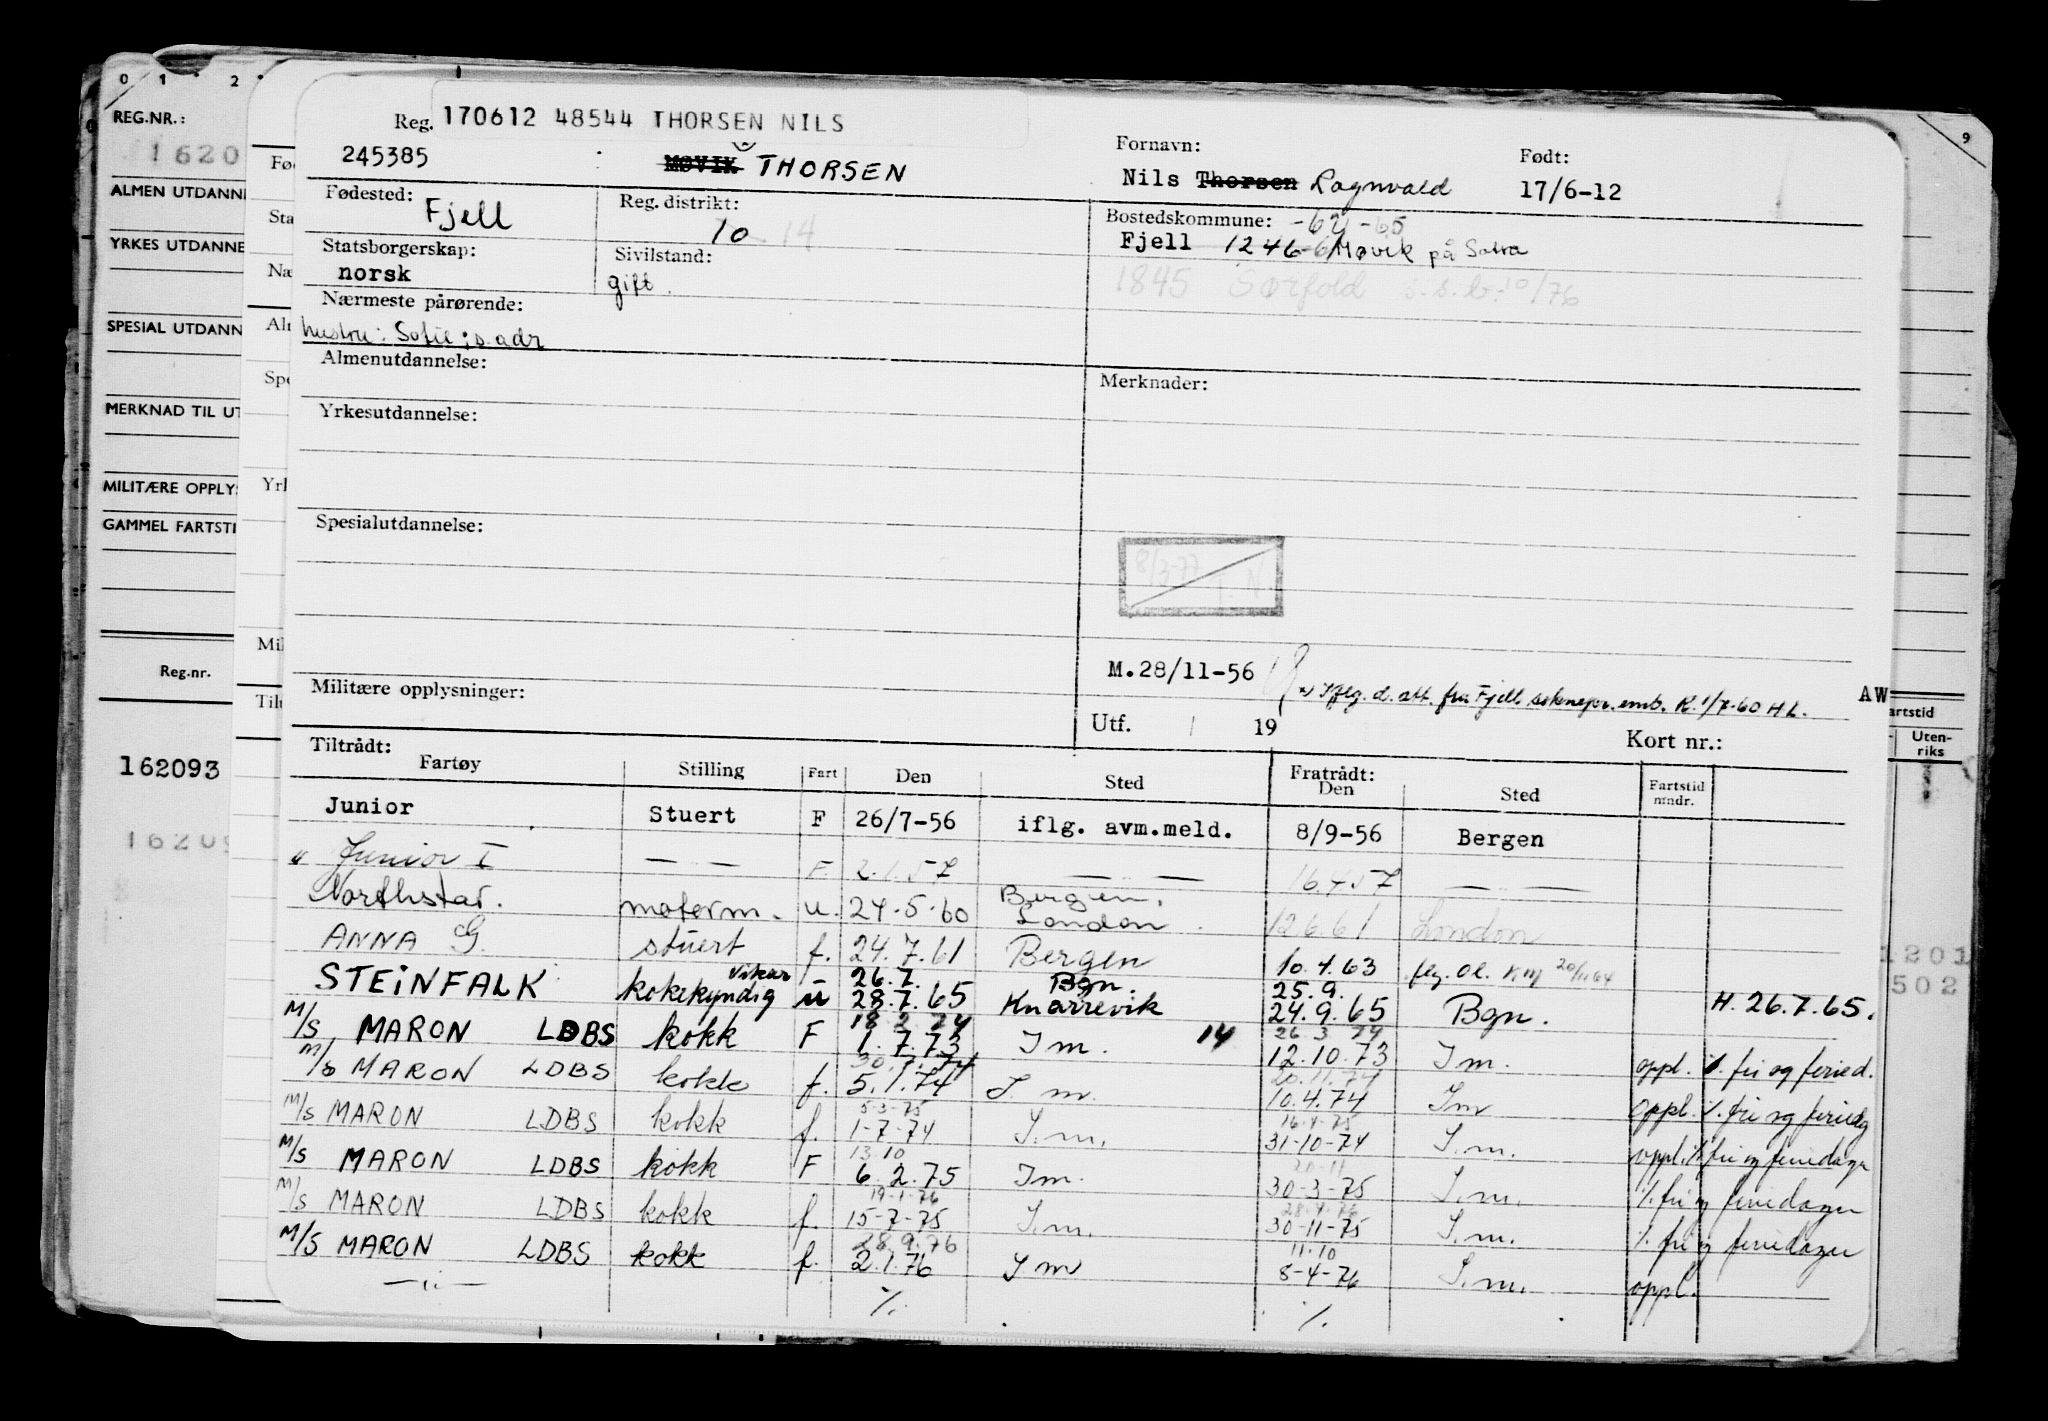 0 1 2
9
REG.NR.:
1620
ALMEN UTDANNE
YRKES UTDANNE
SPESIAL UTDANN
MERKNAD TIL UT
MILITÆRE OPPLYS
GAMMEL FARTSTI
Reg.nr.
162093
Reg. 170612 48544 THORSEN NILS
245385 MØVIK THORSEN
Fornavn: Født:
Nils Thorsen Ragnvald 17/6-12
Fødested: Fjell
Reg. distrikt: 10 14
Bostedskommune: -65
Fjell 1246 Møvik på Sotra
Statsborgerskap: norsk
Sivilstand: gift.
1845 Sørfold s.s.b. 10/76
Nærmeste pårørende:
hustru: Sofie: s. adr
Almenutdannelse:
Merknader:
Yrkesutdannelse:
Spesialutdannelse:
8/3-77 T.N.
M.28/11-56
Iflg. d. att. fra Fjell soknepr. emb. R. 1/7-60 HL.
AW
Militære opplysninger:
Utf. 19
Kort nr.:
artstid
Uten-
riks
Tiltrådt: Fratrådt:
Fartøy Stilling Fart Den Sted Den Sted Fartstid mndr.
Junior Stuert F 26/7-56 iflg. avm.meld. 8/9-56 Bergen
" Junior I — " — F. 2.1.57 — " — 16.4.57 — " —
Northstar. motorm. u. 24.5.60 Bergen, London 12.6.61 London
ANNA G. stuert f. 24.7.61 Bergen 10.4.63
STEINFALK kokekyndig vikar u 26.7. 28.7.65 Bgn. Knarrevik 25.9. 24.9.65 Bgn. H. 26.7.65.
M/S MARON LDBS kokk F 18.2.74 1.7.73 I m. 14 26.3.74 12.10.73 I m. oppl. ./. fri og feried.
M/S MARON LDBS kokk f. 5.1.74 I. m. 20.11.74 10.4.74 I m oppl. ./. fri og feriedg
M/S MARON LDBS kokk f. 5-3-75 1-7-74 I. m. 16.4.75 31-10-74 I. m. oppl. ./. fri og feriedager
M/S MARON LDBS kokk F 13.10 6.2.75 I m. 20-11 30-3-75 I. m. ./. fri og feriedager
M/S MARON LDBS kokk f. 19-1-76 15-7-75 I. m. 30-11-75 I. m. ./. fri og feriedager
M/S MARON LDBS kokk f. 28.9.76 2.1.76 I m 11.10 8-4-76 I. m. oppl.
— " — ./. ./.
1201
502